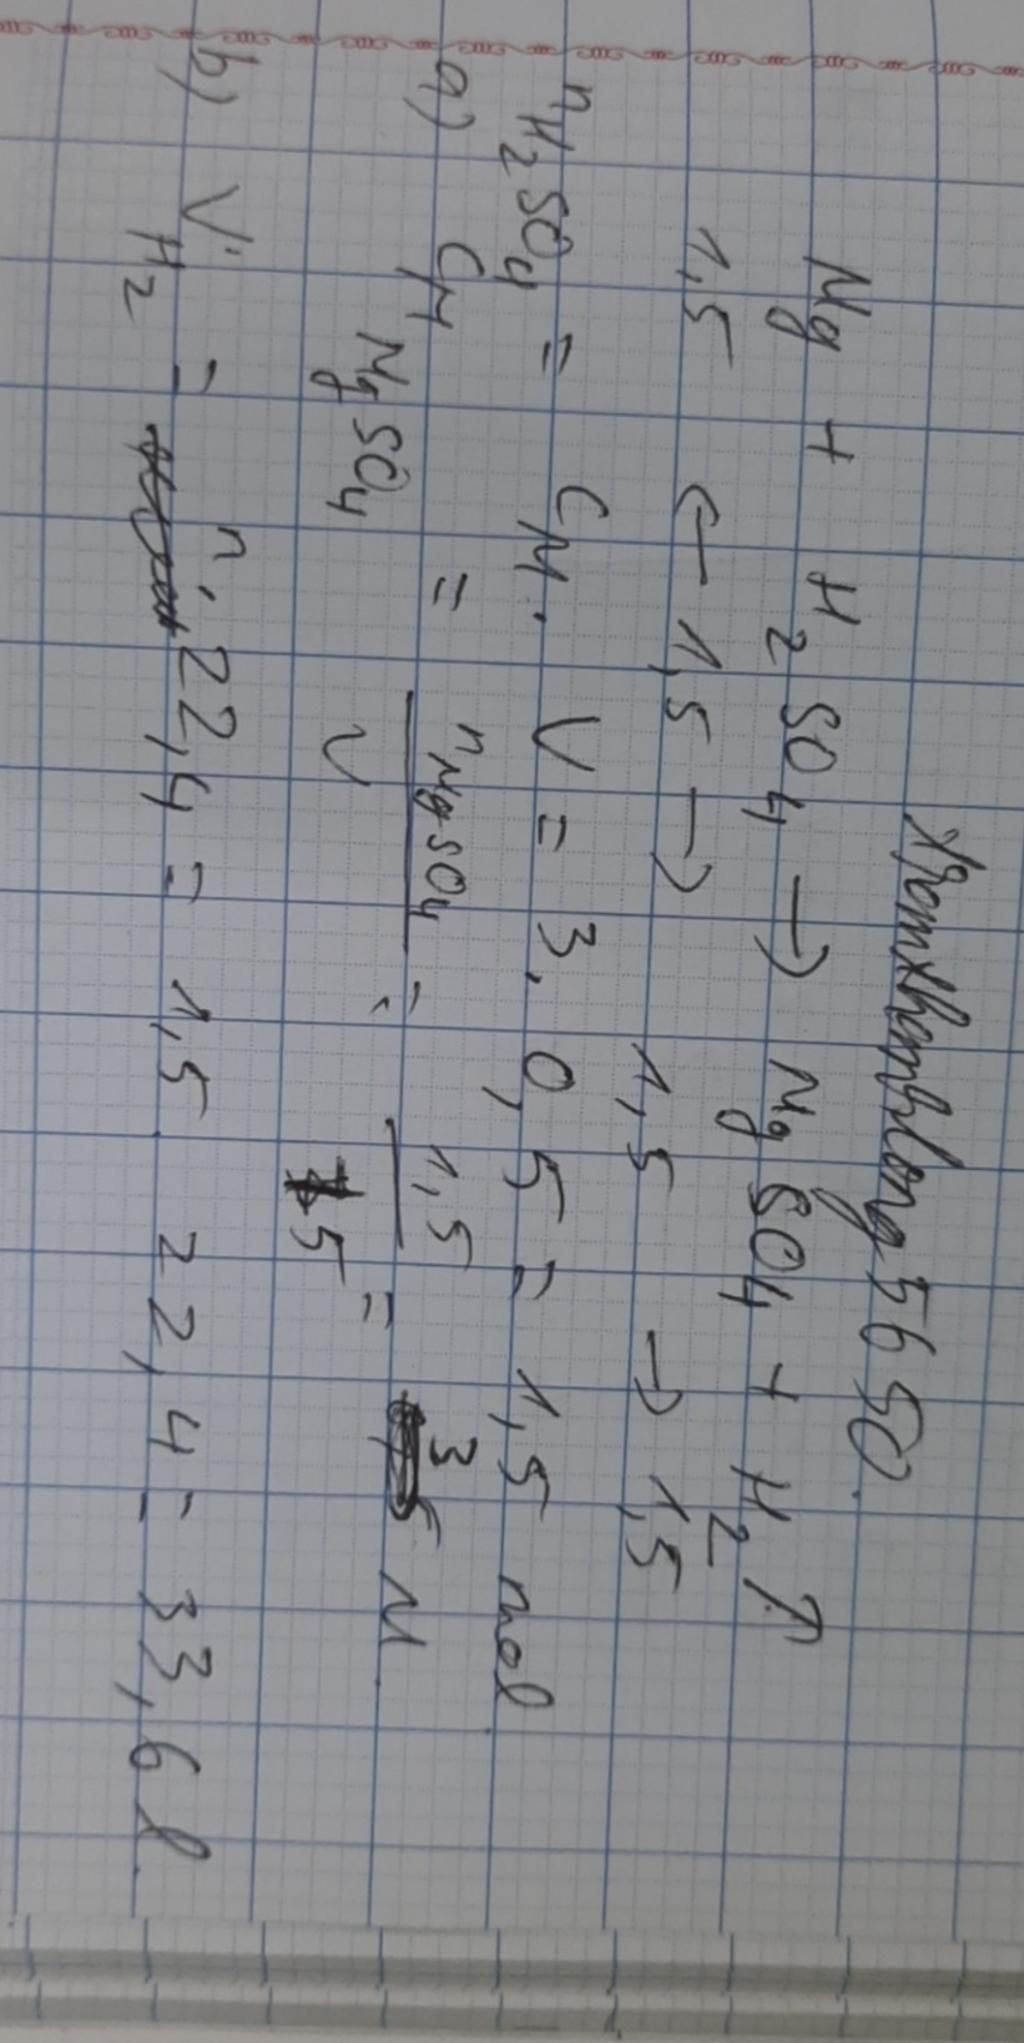 tranthanhlong5650.
Mg + H2SO4 → MgSO4 + H2↑
1,5 ← 1,5 → 1,5 → 1,5
nH2SO4 = CM . V = 3 . 0,5 = 1,5 mol
a) CM MgSO4 = nMgSO4 / V = 1,5 / 5 = 3 M
b) VH2 = n . 22,4 = 1,5 . 22,4 = 33,6 l.